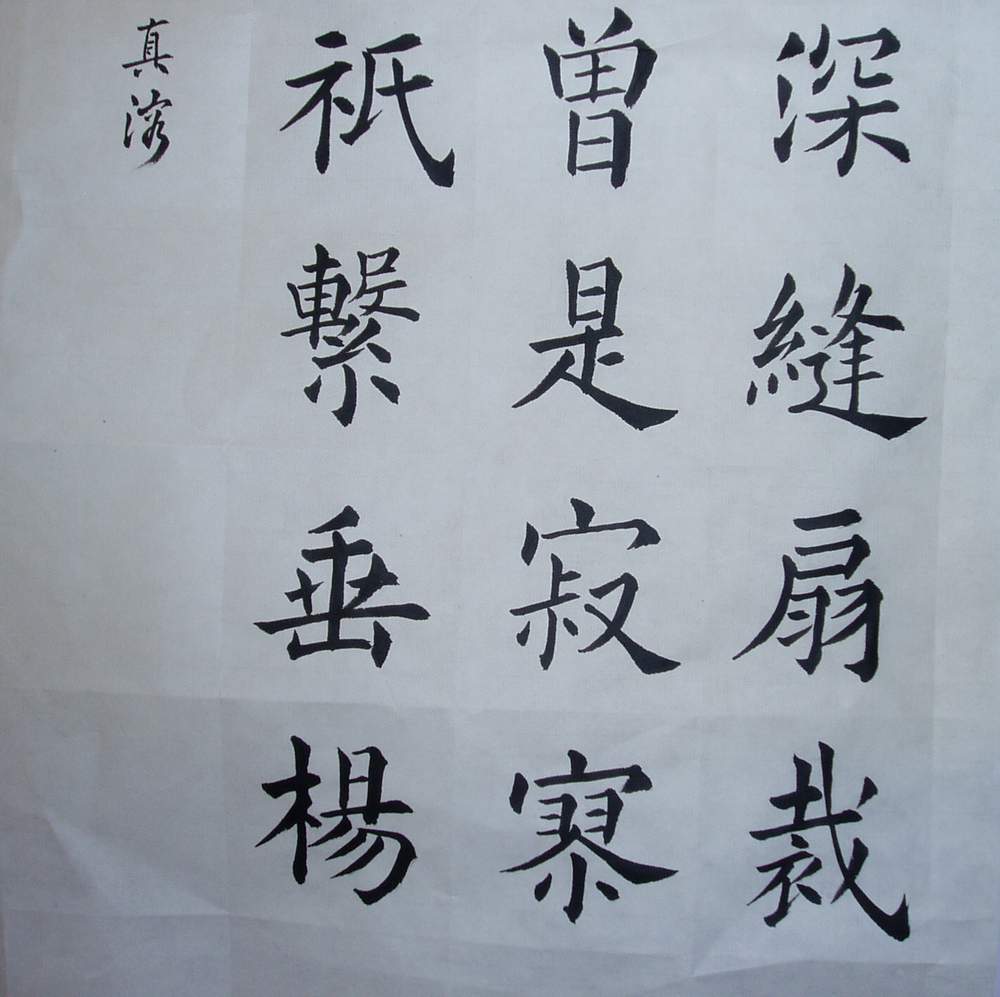 深縫扇裁
曾是寂寥
祇繫垂楊
真溶